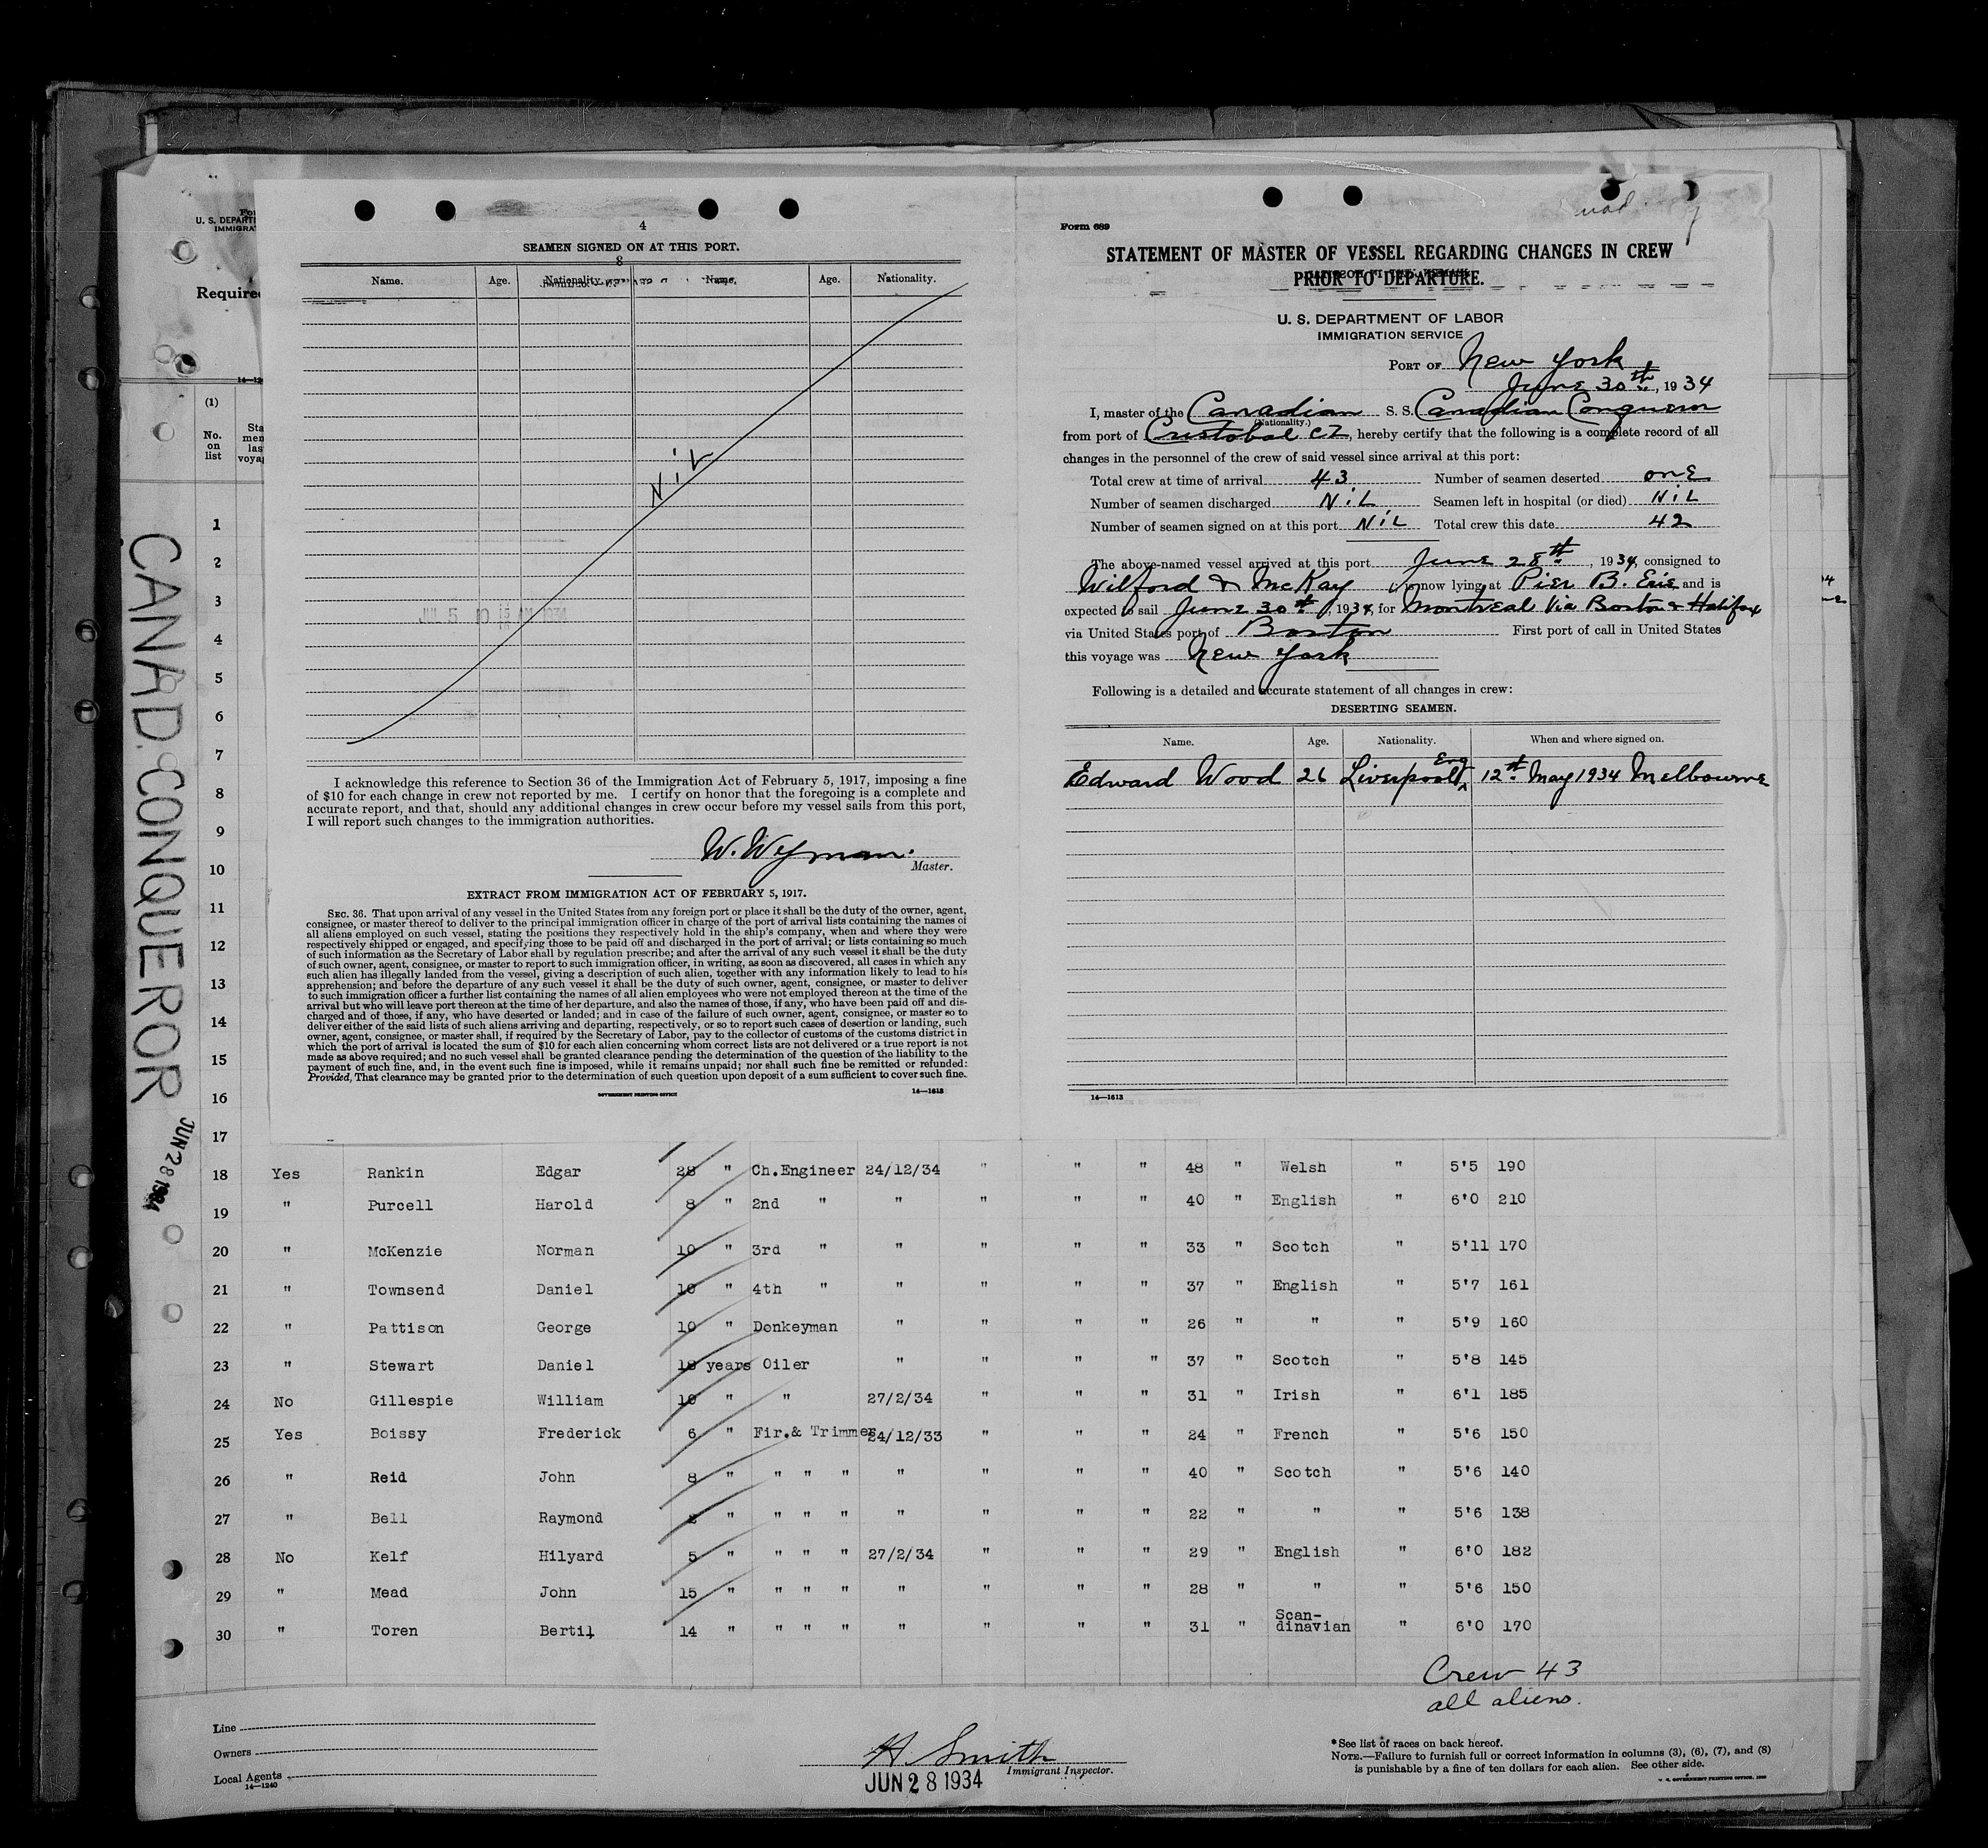 For
U. S. DEPARTM
IMMIGRAT
Required
14—12
(1)
No. on list
Sta
men
las
voya
CANAD. CONQUEROR
JUN 28 1934
4
SEAMEN SIGNED ON AT THIS PORT.
8
Name. Age. Nationality. Name. Age. Nationality.
NiL
JUL 5 10 15 AM 1934
I acknowledge this reference to Section 36 of the Immigration Act of February 5, 1917, imposing a fine
of $10 for each change in crew not reported by me. I certify on honor that the foregoing is a complete and
accurate report, and that, should any additional changes in crew occur before my vessel sails from this port,
I will report such changes to the immigration authorities.
W. Wyman.
Master.
EXTRACT FROM IMMIGRATION ACT OF FEBRUARY 5, 1917.
SEC. 36. That upon arrival of any vessel in the United States from any foreign port or place it shall be the duty of the owner, agent,
consignee, or master thereof to deliver to the principal immigration officer in charge of the port of arrival lists containing the names of
all aliens employed on such vessel, stating the positions they respectively hold in the ship's company, when and where they were
respectively shipped or engaged, and specifying those to be paid off and discharged in the port of arrival; or lists containing so much
of such information as the Secretary of Labor shall by regulation prescribe; and after the arrival of any such vessel it shall be the duty
of such owner, agent, consignee, or master to report to such immigration officer, in writing, as soon as discovered, all cases in which any
such alien has illegally landed from the vessel, giving a description of such alien, together with any information likely to lead to his
apprehension; and before the departure of any such vessel it shall be the duty of such owner, agent, consignee, or master to deliver
to such immigration officer a further list containing the names of all alien employees who were not employed thereon at the time of the
arrival but who will leave port thereon at the time of her departure, and also the names of those, if any, who have been paid off and dis-
charged and of those, if any, who have deserted or landed; and in case of the failure of such owner, agent, consignee, or master so to
deliver either of the said lists of such aliens arriving and departing, respectively, or so to report such cases of desertion or landing, such
owner, agent, consignee, or master shall, if required by the Secretary of Labor, pay to the collector of customs of the customs district in
which the port of arrival is located the sum of $10 for each alien concerning whom correct lists are not delivered or a true report is not
made as above required; and no such vessel shall be granted clearance pending the determination of the question of the liability to the
payment of such fine, and, in the event such fine is imposed, while it remains unpaid; nor shall such fine be remitted or refunded:
Provided, That clearance may be granted prior to the determination of such question upon deposit of a sum sufficient to cover such fine.
GOVERNMENT PRINTING OFFICE 14—1613
Form 689
STATEMENT OF MASTER OF VESSEL REGARDING CHANGES IN CREW
PRIOR TO DEPARTURE.
U. S. DEPARTMENT OF LABOR
IMMIGRATION SERVICE
PORT OF New York
June 30th, 1934
I, master of the Canadian S. S. Canadian Conqueror
(Nationality.)
from port of Cristobal CZ, hereby certify that the following is a complete record of all
changes in the personnel of the crew of said vessel since arrival at this port:
Total crew at time of arrival 43 Number of seamen deserted one
Number of seamen discharged NiL Seamen left in hospital (or died) NiL
Number of seamen signed on at this port NiL Total crew this date 42
The above-named vessel arrived at this port June 28th, 1934, consigned to
Wilford & McKay is now lying at Pier B. Erie and is
expected to sail June 30th, 1934, for Montreal Via Boston & Halifax
via United States port of Boston First port of call in United States
this voyage was New York
Following is a detailed and accurate statement of all changes in crew:
DESERTING SEAMEN.
Name. Age. Nationality. When and where signed on.
Edward Wood 26 Liverpool Eng 12th May 1934 Melbourne
14—1613
1
2
3
4
5
6
7
8
9
10
11
12
13
14
15
16
17
18 Yes Rankin Edgar 28 " Ch.Engineer 24/12/34 " " " 48 " Welsh " 5'5 190
19 " Purcell Harold 8 " 2nd " " " " " 40 " English " 6'0 210
20 " McKenzie Norman 10 " 3rd " " " " " 33 " Scotch " 5'11 170
21 " Townsend Daniel 10 " 4th " " " " " 37 " English " 5'7 161
22 " Pattison George 10 " Donkeyman " " " " 26 " " " 5'9 160
23 " Stewart Daniel 18 years Oiler " " " " 37 " Scotch " 5'8 145
24 No Gillespie William 10 " " 27/2/34 " " " 31 " Irish " 6'1 185
25 Yes Boissy Frederick 6 " Fir.& Trimmer 24/12/33 " " " 24 " French " 5'6 150
26 " Reid John 8 " " " " " " " " 40 " Scotch " 5'6 140
27 " Bell Raymond 2 " " " " " " " " 22 " " " 5'6 138
28 No Kelf Hilyard 5 " " " " 27/2/34 " " " 29 " English " 6'0 182
29 " Mead John 15 " " " " " " " " 28 " " " 5'6 150
30 " Toren Bertil 14 " " " " " " " " 31 " Scan-
dinavian " 6'0 170
Crew 43
all aliens.
Line
Owners
Local Agents
14—1240
H. Smith
Immigrant Inspector.
JUN 28 1934
*See list of races on back hereof.
NOTE.—Failure to furnish full or correct information in columns (3), (6), (7), and (8)
is punishable by a fine of ten dollars for each alien. See other side.
U. S. GOVERNMENT PRINTING OFFICE